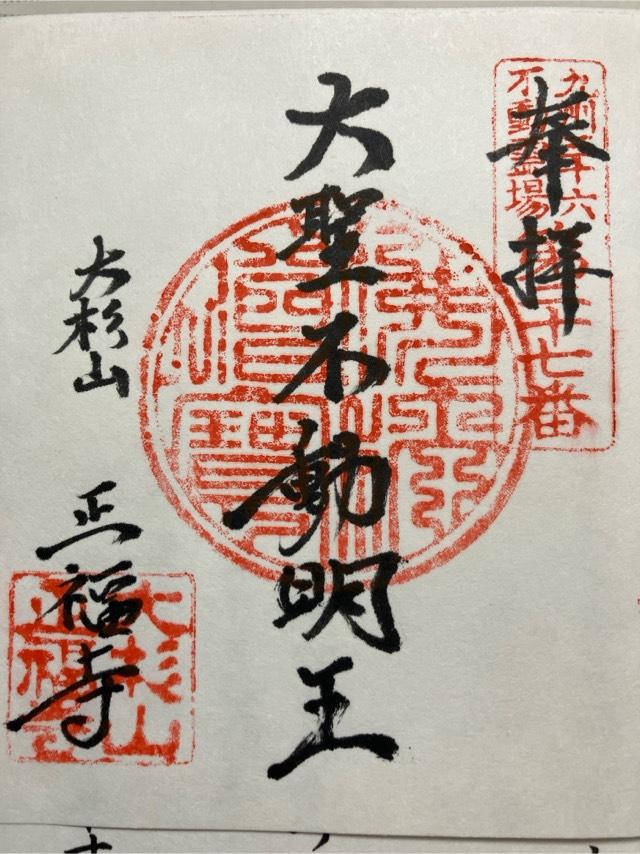 奉拝
九州三十六
不動霊場
第二十七番
大聖不動明王
佛法僧寶
大杉山
正福寺
大杉山
正福寺